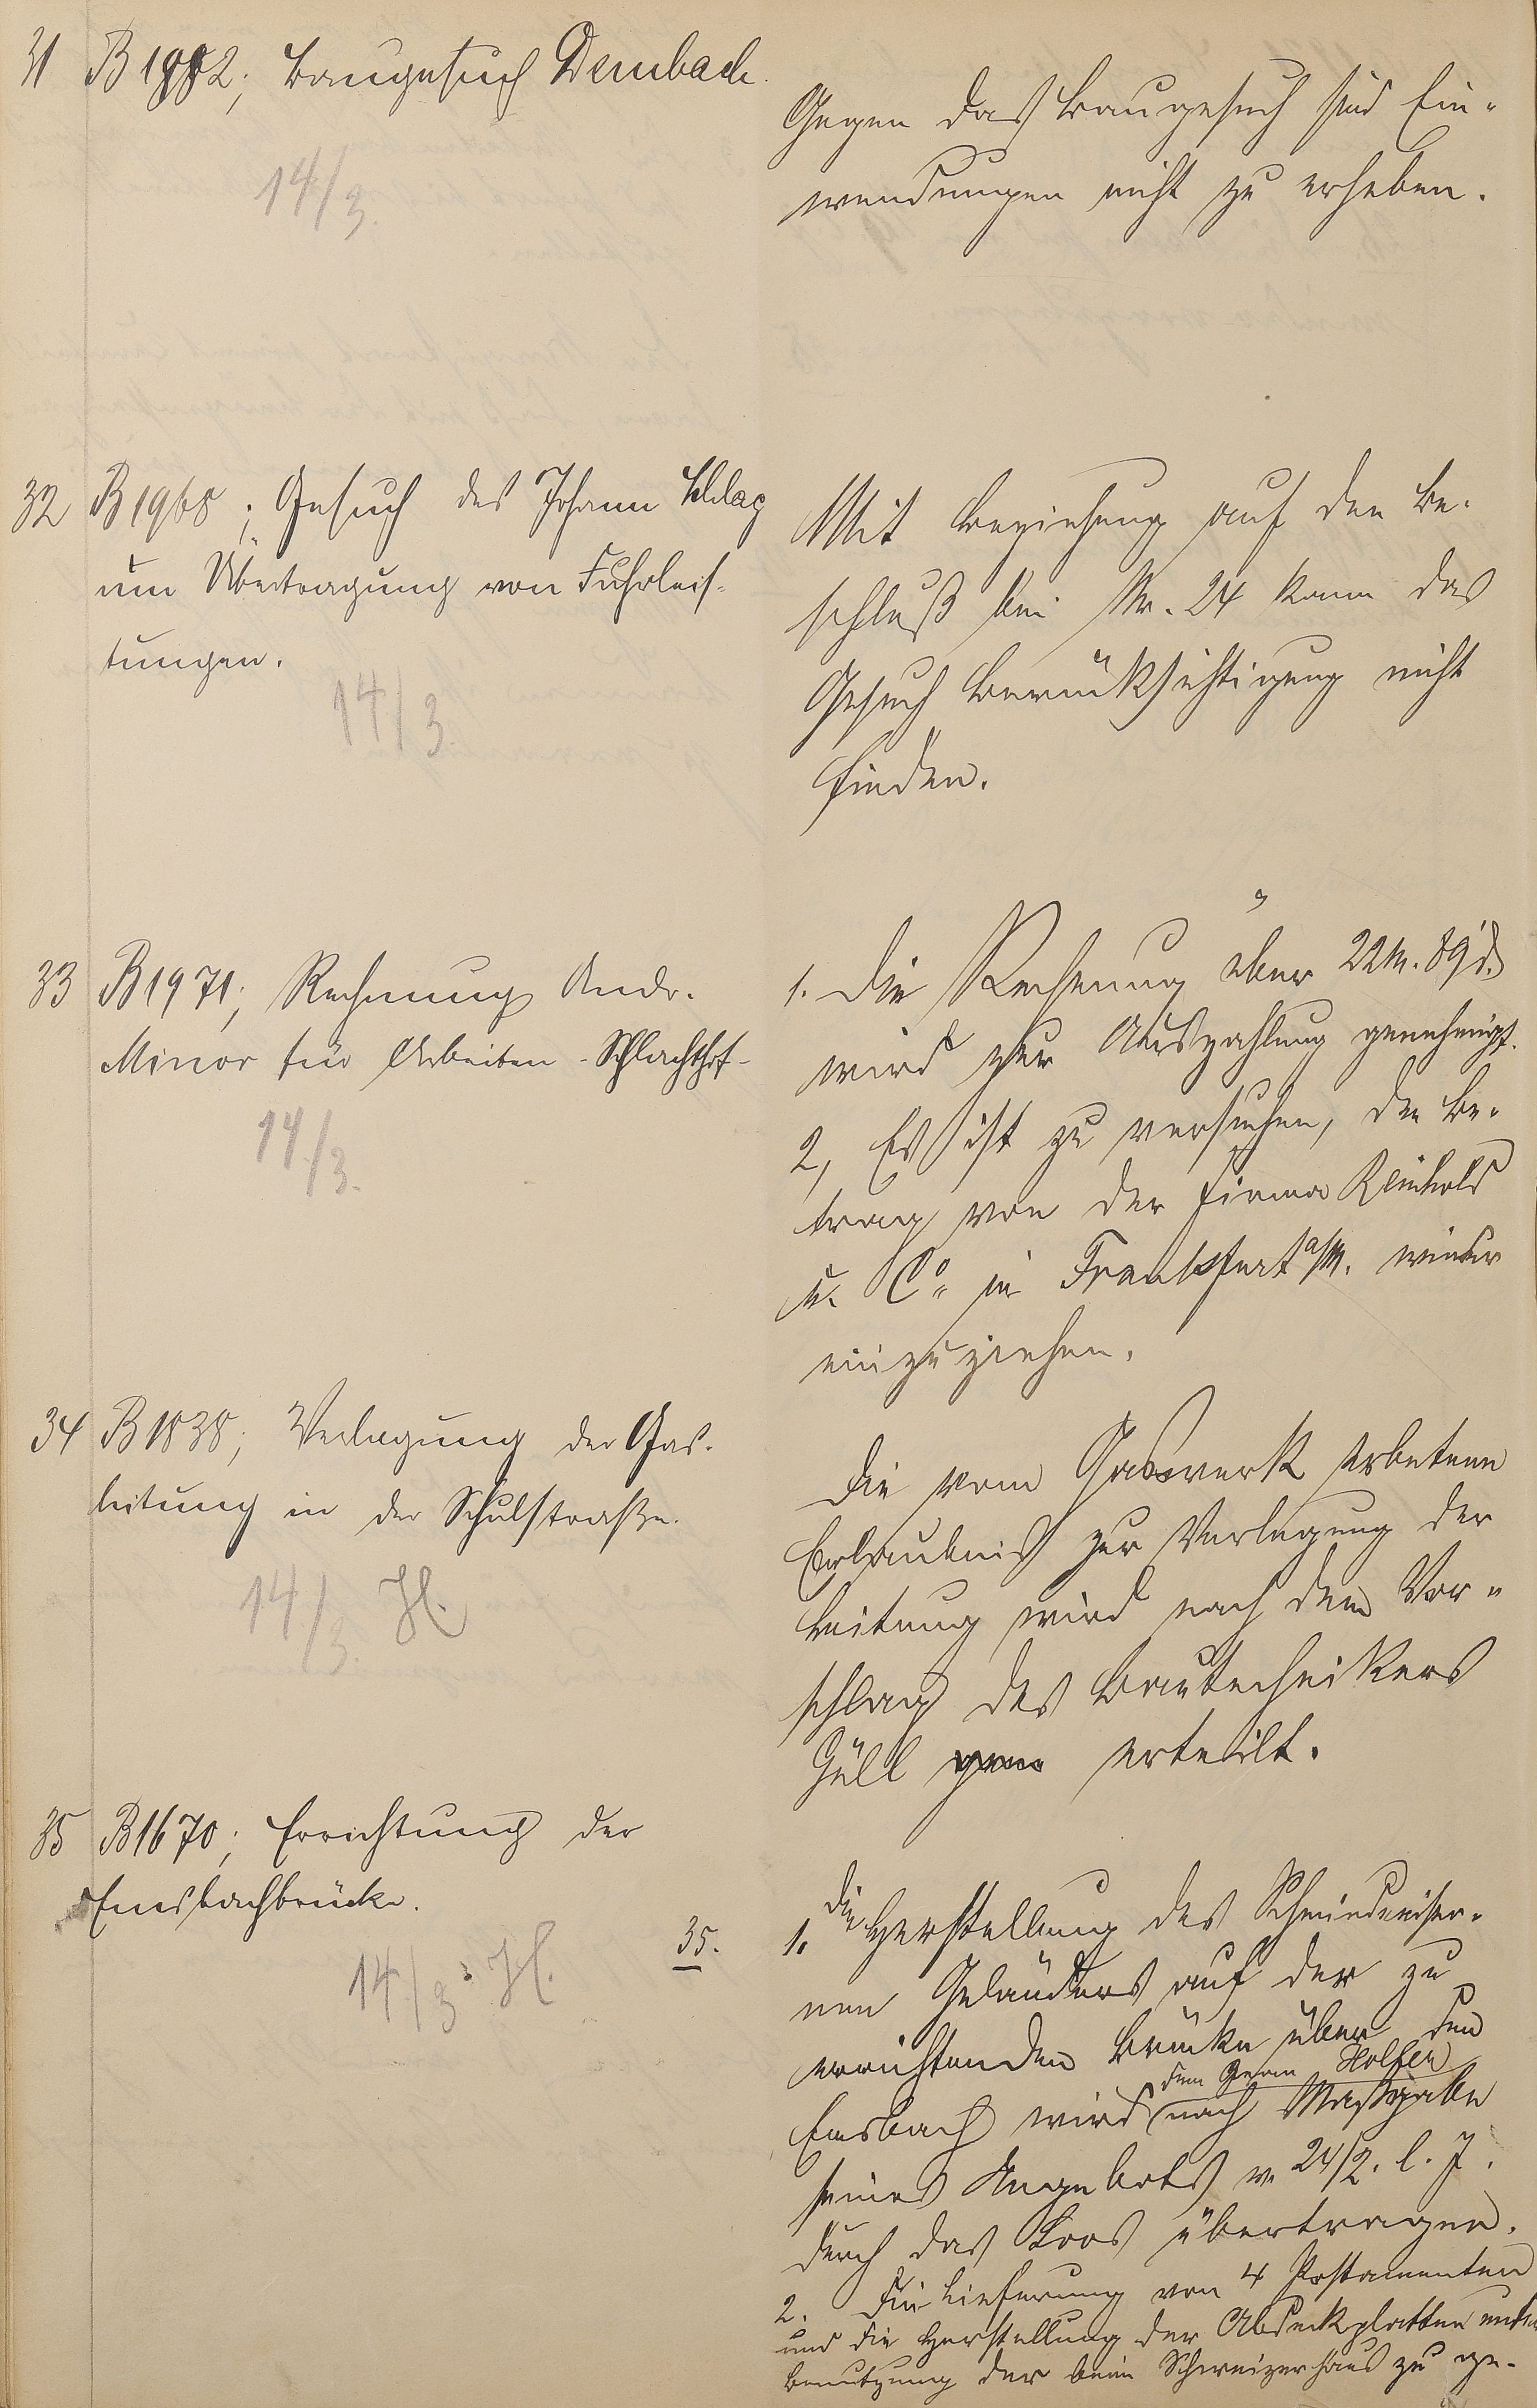 31 B 1982; Baugesuch Dembach.
14/3.
Gegen das Baugesuch sind Ein-
wendungen nicht zu erheben.
32 B 1968; Gesuch des Johann
um Übertragung von Fuhrleis-
tungen.
14/3.
Mit Beziehung auf den Be-
schluß bei Nr. 24 kann das
Gesuch Berücksichtigung nicht
finden.
33 B 1971; Rechnung Andr.
Minor für Arbeiten - Schlachthof -
14/3.
1. Die Rechnung über 22 M. 89 d.
wird zur Auszahlung genehmigt.
2, Es ist zu versuchen, den Be-
trag von der Firma Reinhold
u. Co. in Frankfurt a/M. wieder
einzuziehen.
34 B 1838; Verlegung der Gas-
leitung in der Schulstraße.
14/3. H.
Die vom Gaswerk erbetene
Erlaubnis zur Verlegung der
Leitung wird nach dem Vor-
schlag des Bautechnikers
Güll erteilt.
35 B 1670; Errichtung der
Emsbachbrücke.
14/3. H.
35.
1. Die Herstellung des Schmiedeeiser-
nen Geländers auf der zu
errichtenden Brücke über den
Emsbach wird dem Georg nach Maßgabe
seines Angebots v. 24/2. l. J.
durch das Loos übertragen.
2. Die Lieferung von 4 Postamenten
und die Herstellung der Abdeckplatten unter
Benutzung der beim Schweizerhaus zu ge-